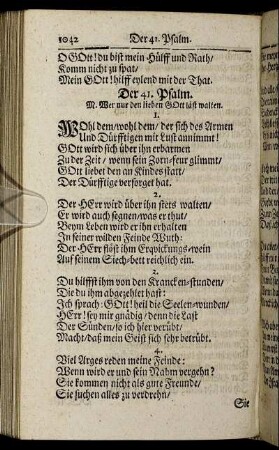 1042 Der 41. Psalm.
O GOtt! du bist mein Hülff und Rath/
Komm nicht zu spat/
Mein GOtt! hilff eylend mit der That.
Der 41. Psalm.
M. Wer nur den lieben GOtt läst walten.
1.
WOhl dem/ wohl dem/ der sich des Armen
Und Dürfftigen mit Lust annimmt!
GOtt wird sich über ihn erbarmen
Zu der Zeit/ wenn sein Zorn-feur glimmt/
GOtt liebet den an Kindes statt/
Der Dürfftige versorget hat.
2.
Der HErr wird über ihn stets walten/
Er wird auch segnen/ was er thut/
Beym Leben wird er ihn erhalten
In seiner wilden Feinde Wuth:
Der HErr flöst ihm Erquickungs-wein
Auf seinem Siech-bett reichlich ein.
3.
Du hilffst ihm von den Krancken-stunden/
Die du ihm abgezehlet hast:
Ich sprach: GOtt! heil die Seelen-wunden/
HErr! sey mir gnädig/ denn die Last
Der Sünden/ so ich hier verübt/
Macht/ daß mein Geist sich sehr betrübt.
4.
Viel Arges reden meine Feinde:
Wenn wird er und sein Nahm vergehn?
Sie kommen nicht als gute Freunde/
Sie suchen alles zu verdrehn/
Sie